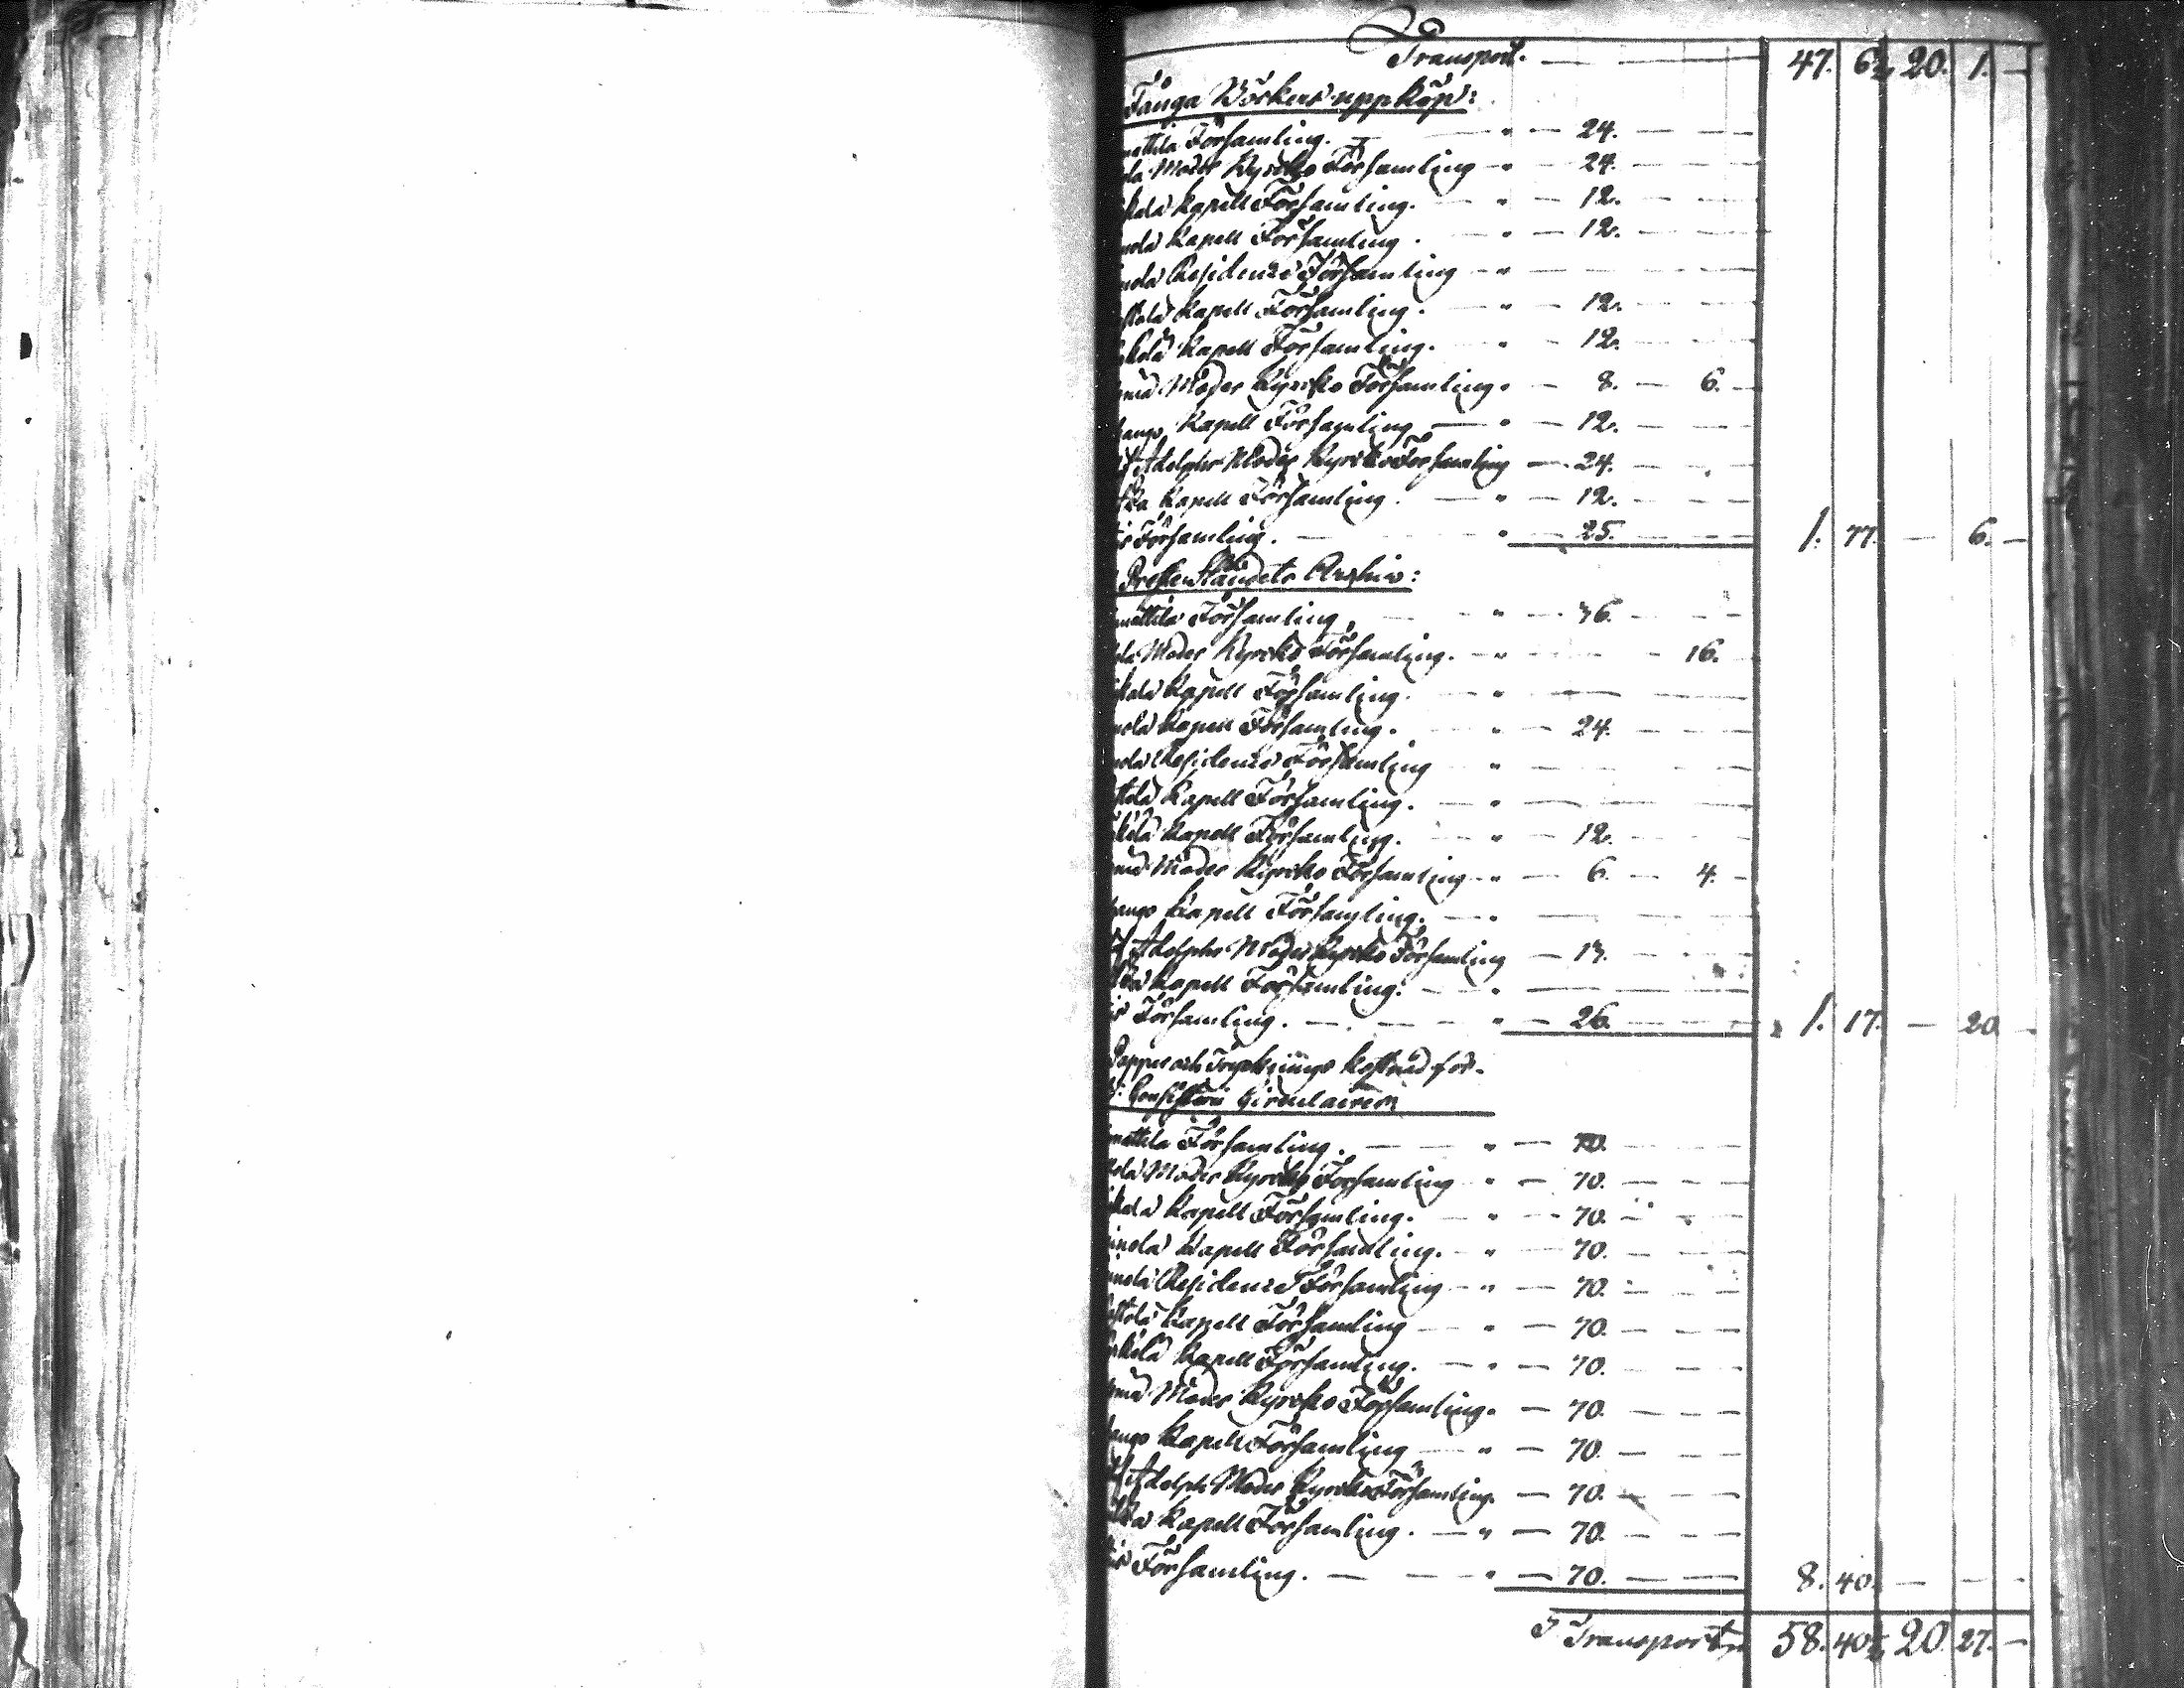 Transport. — 47. 6½ 20. 1. —
Fånga Wörkens uppköp:
mattila Församling. " — 24. — —
la Moder Kyrko Församling — " — 24. — —
kala Kapell Församling. — " — 12. — —
nola Kapell Församling. — " — 12. — —
nola Residence Församling — " — — —
stola Kapell Församling. — " — 12. — —
kela Kapell Församling. " — 12. — —
Moder Kyrko Församling. — 8. — 6. —
Kapell Församling — " — 12. — —
Adolphs Moder Kyrko Församling — 24. — —
Kapell Församling. — " — 12. — —
Församling. — " — 25. — — 1. 77. — 6. —
Preste Ståndets Archiv:
mattila Församling. — " — 36. — —
la Moder Kyrko Församling. — " — — 16.
kala Kapell Församling. — " — — —
nola Kapell Församling. " — 24. — —
nola Residence Församling " — — —
stola Kapell Församling. — " — — —
kela Kapell Församling. — " — 12. — —
Moder Kyrko Församling — " — 6. — 4. —
Kapell Församling. — " — — —
Adolphs Moder Kyrko Församling — 13. — —
Kapell Församling. — " — — —
Församling. — " — 26. — — 1. 17. — 20. —
Papper och Trycknings kostnad för
Consistorii Circulairen
mattila Församling. — " — 70. — —
la Moder Kyrko Församling " — 70. — —
kala Kapell Församling. — " — 70. — —
nola Kapell Församling. — " — 70. — —
nola Residence Församling — " — 70. — —
stola Kapell Församling — " — 70. — —
kela Kapell Församling. — " — 70. — —
Moder Kyrko Församling. — 70. — —
Kapell Församling — " — 70. — —
Adolph Moder Kyrko Församling. — 70. — —
Kapell Församling. — " — 70. — —
Församling. — " — 70. — — 8. 40. — — —
Transport 58. 40½ 20. 27. —